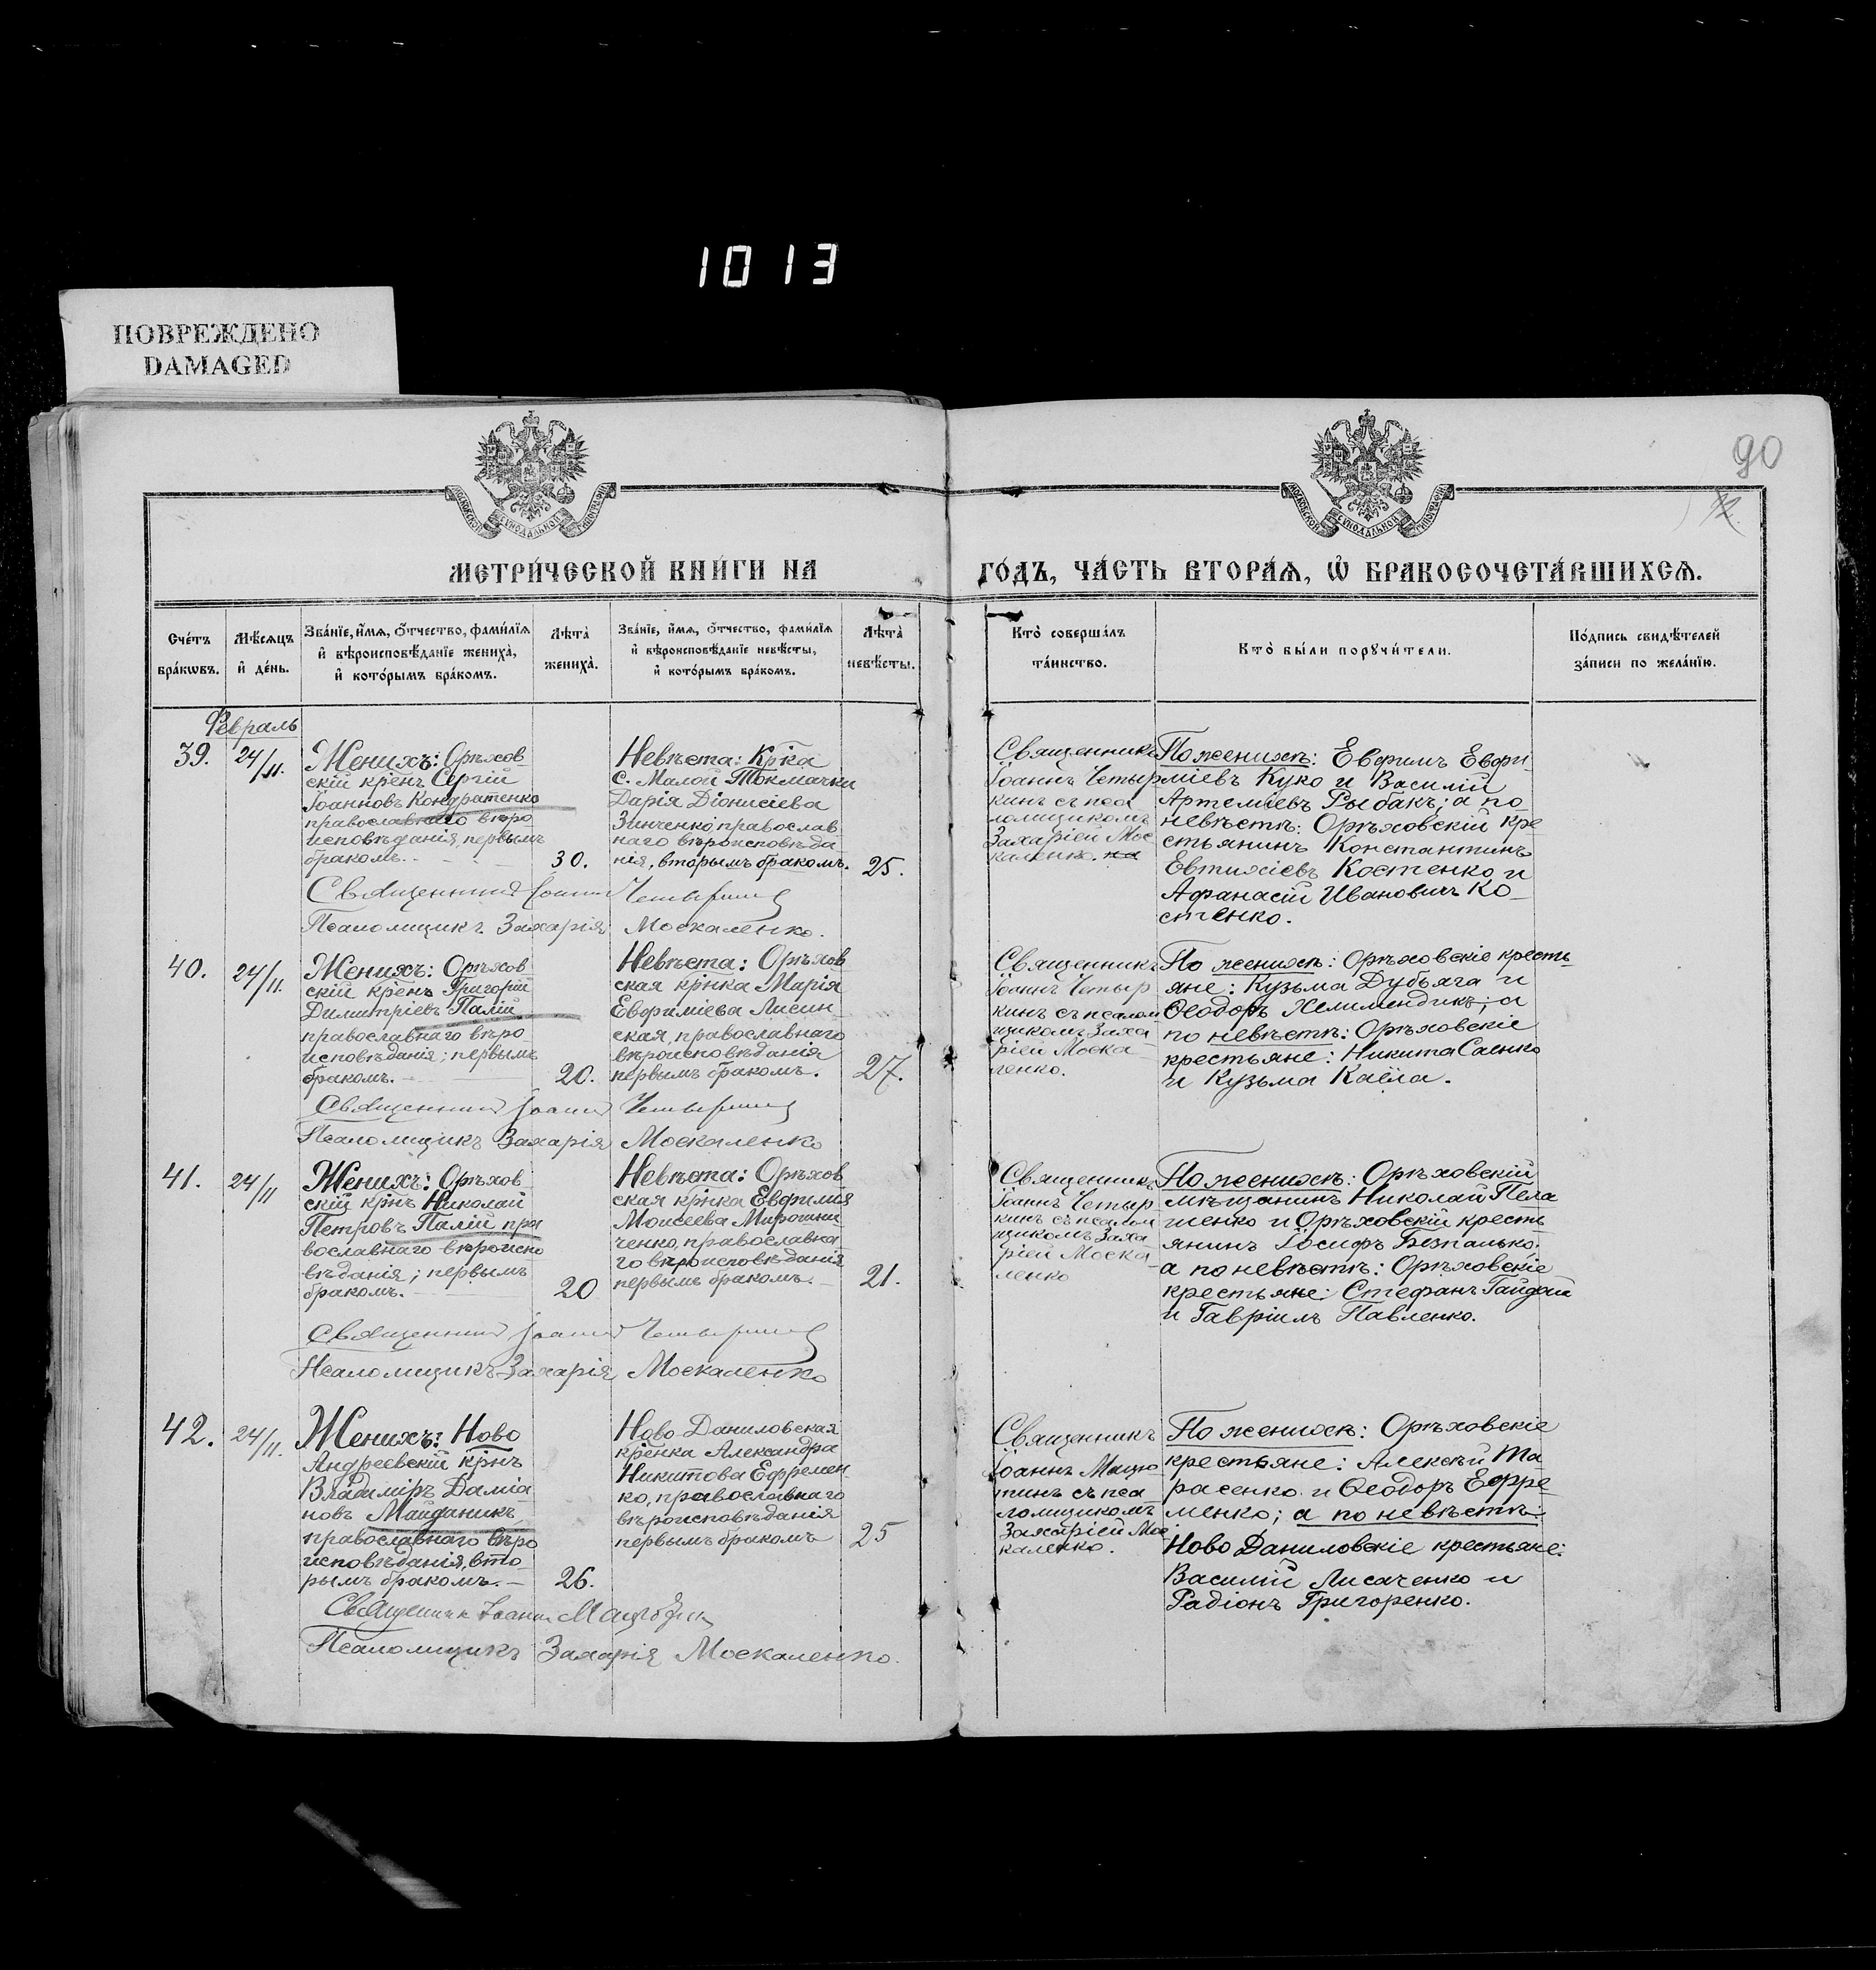 1013
ПОВРЕЖДЕНО
DAMAGED
90
12.
МОСКОВСКОЙ СѴНОДАЛЬНОЙ ТИПОГРАФІИ
МОСКОВСКОЙ СѴНОДАЛЬНОЙ ТИПОГРАФІИ
МЕТРИ́ЧЕСКОЙ КНИ́ГИ НА
ГО́ДЪ, ЧА́СТЬ ВТОРА́Ѧ, Ѽ БРАКОСОЧЕТА́ВШИХСѦ.
Сче́тъ
бра́кѡвъ.
Мѣ́сѧцъ
и҆ де́нь.
Зва́нїе, и҆́мѧ, ѻ҆́тчество, фами́лїѧ
и҆ вѣроисповѣ́данїе жениха̀,
и҆ кото́рымъ бра́комъ.
Лѣта̀
жениха̀.
Зва́нїе, и҆́мѧ, ѻ҆́тчество, фами́лїѧ
и҆ вѣроисповѣ́данїе невѣ́сты,
и҆ кото́рымъ бра́комъ.
Лѣта̀
невѣ́сты.
Кто̀ соверша́лъ
та́инство.
Кто̀ бы́ли порꙋчи́тели.
По́дпись свидѣ́телей
за́писи по жела́нїю.
Февраль
39.
24/II.
Женихъ: Орѣхов-
скій крен̄ъ Сергій
Іоанновъ Кондратенко
православнаго вѣро-
исповѣданія, первымъ
бракомъ.
30.
Невѣста: Кр̄ка
с. Малой Токмачки
Дарія Діонисіева
Зинченко, православ-
наго вѣроисповѣда-
нія, вторымъ бракомъ.
25.
Священникъ
Іоаннъ Четыр-
кинъ съ пса-
ломщикомъ
Захаріей Мос-
каленко.
По женихѣ: Евфимъ Евфи-
міевъ Куко и Василій
Артеміевъ Рыбакъ; а по
невѣстѣ: Орѣховскій кре-
стьянинъ Константинъ
Евтихіевъ Костенко и
Афанасій Ивановичъ Ко-
стенко.
Священникъ Іоаннъ Четыркинъ
Псаломщикъ Захарія Москаленко.
40.
24/II.
Женихъ: Орѣхов-
скій крен̄ъ Григорій
Димитріевъ Палій
православнаго вѣро-
исповѣданія; первымъ
бракомъ.
20.
Невѣста: Орѣхов-
ская крн̄ка Марія
Евфиміева Лисин-
ская, православнаго
вѣроисповѣданія
первымъ бракомъ.
27.
Священникъ
Іоаннъ Четыр-
кинъ съ псалом-
щикомъ Заха-
ріей Моска-
ленко.
По женихѣ: Орѣховскіе кресть-
яне: Кузьма Дубьяга и
Ѳеодоръ Хелимендикъ; а
по невѣстѣ: Орѣховскіе
крестьяне: Никита Саенко
и Кузьма Каіла.
Священникъ Іоаннъ Четыркинъ
Псаломщикъ Захарія Москаленко
41.
24/II
Женихъ: Орѣхов-
скій крн̄ъ Николай
Петровъ Палій пра-
вославнаго вѣроиспо-
вѣданія; первымъ
бракомъ.
20
Невѣста: Орѣхов-
ская крн̄ка Евфимія
Моисеева Мирошни-
ченко, православна-
го вѣроисповѣданія
первымъ бракомъ.
21.
Священникъ
Іоаннъ Четыр-
кинъ съ псалом-
щикомъ Заха-
ріей Моска-
ленко
По женихѣ: Орѣховскій
мѣщанинъ Николай Пела-
шенко и Орѣховскій кресть-
янинъ Іосифъ Безпалько;
а по невѣстѣ: Орѣховскіе
крестьяне: Стефанъ Гайдай
и Гавріилъ Павленко.
Священникъ Іоаннъ Четыркинъ
Псаломщикъ Захарія Москаленко
42.
24/II.
Женихъ: Ново
Андреевскій крн̄ъ
Владиміръ Даміа-
новъ Майданикъ,
православнаго вѣро-
исповѣданія, вто-
рымъ бракомъ.
26.
Ново Даниловская
крен̄ка Александра
Никитова Ефремен-
ко, православнаго
вѣроисповѣданія
первымъ бракомъ
25
Священникъ
Іоаннъ Мацю-
тинъ съ пса-
ломщикомъ
Захаріей Мос-
каленко.
По женихѣ: Орѣховскіе
крестьяне: Алексѣй Та-
расенко и Ѳеодоръ Ефре-
менко; а по невѣстѣ:
Ново Даниловскіе крестьяне:
Василій Лисаченко и
Радіонъ Григоренко.
Священникъ Іоаннъ
Псаломщикъ Захарія Москаленко.